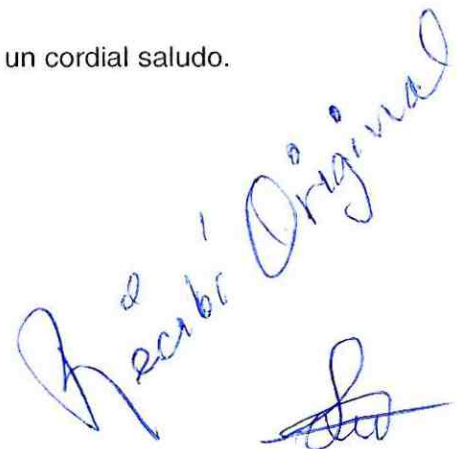 un cordial saludo.
Recibí Original